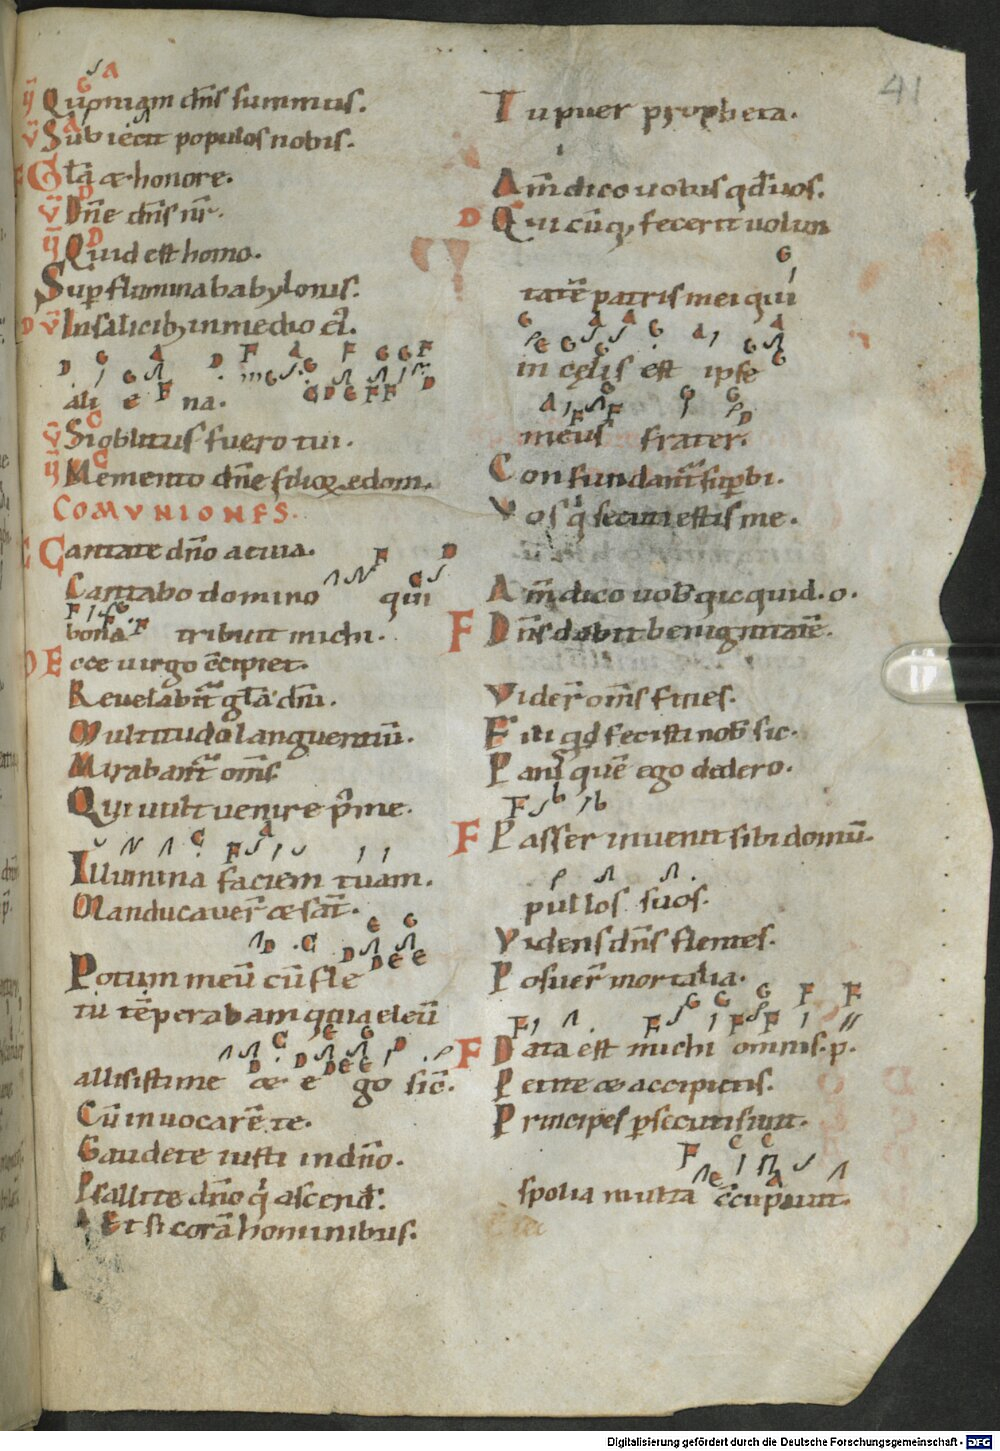 41
ṽ Quoniam dñs summus.
ṽ Subiecit populos nobis.
Gła & honore.
ṽ Dñe dñs nr̄.
ṽ Quid est homo.
Sup flumina babylonis.
D ṽ In salicib; in medio ei.
ali e na.
ṽ Si oblitus fuero tui.
ṽ Memento dñe filioꝝ edom.
COMVNIONES.
Cantate dño a
Cantabo domino qui
bona tribuit michi.
D Ecce uirgo c̄cipiet.
Reuelabit̃ gła dñi.
Multitudo languentiū.
Mirabant̃ om̄s
Qui uult uenire p̄ me.
Illumina faciem tuam.
Manducauer̃ & sat̃.
Potum meū cū fle
tu tēperabam quia eleuā
allisisti me & e go sic̄.
Cū inuocarē te.
Gaudete iusti in dño.
Psallite dño q̇ ascend̃.
Et si corā hominibus.
Tu puer propheta.
Am̄ dico uobis qd̃ uos.
D Qui cūq; fecerit uolun
tatē patris mei qui
in cęlis est ipse
meus frater.
Confundant̃ supbi.
Vos q̇ secuti estis me.
Am̄ dico uob̃ qicquid. o.
F Dñs dabit benignitatē.
Vider̃ om̄s fines.
F iti qd fecisti nob̃ sic.
Panis quē ego dedero.
F Passer inuenit sibi domū.
pullos suos.
Videns dñs flentes.
Posuer̃ mortalia.
F Data est michi omnis. p.
Petite & accipietis.
Principes psecuti sunt.
spolia multa
Digitalisierung gefördert durch die Deutsche Forschungsgemeinschaft - DFG